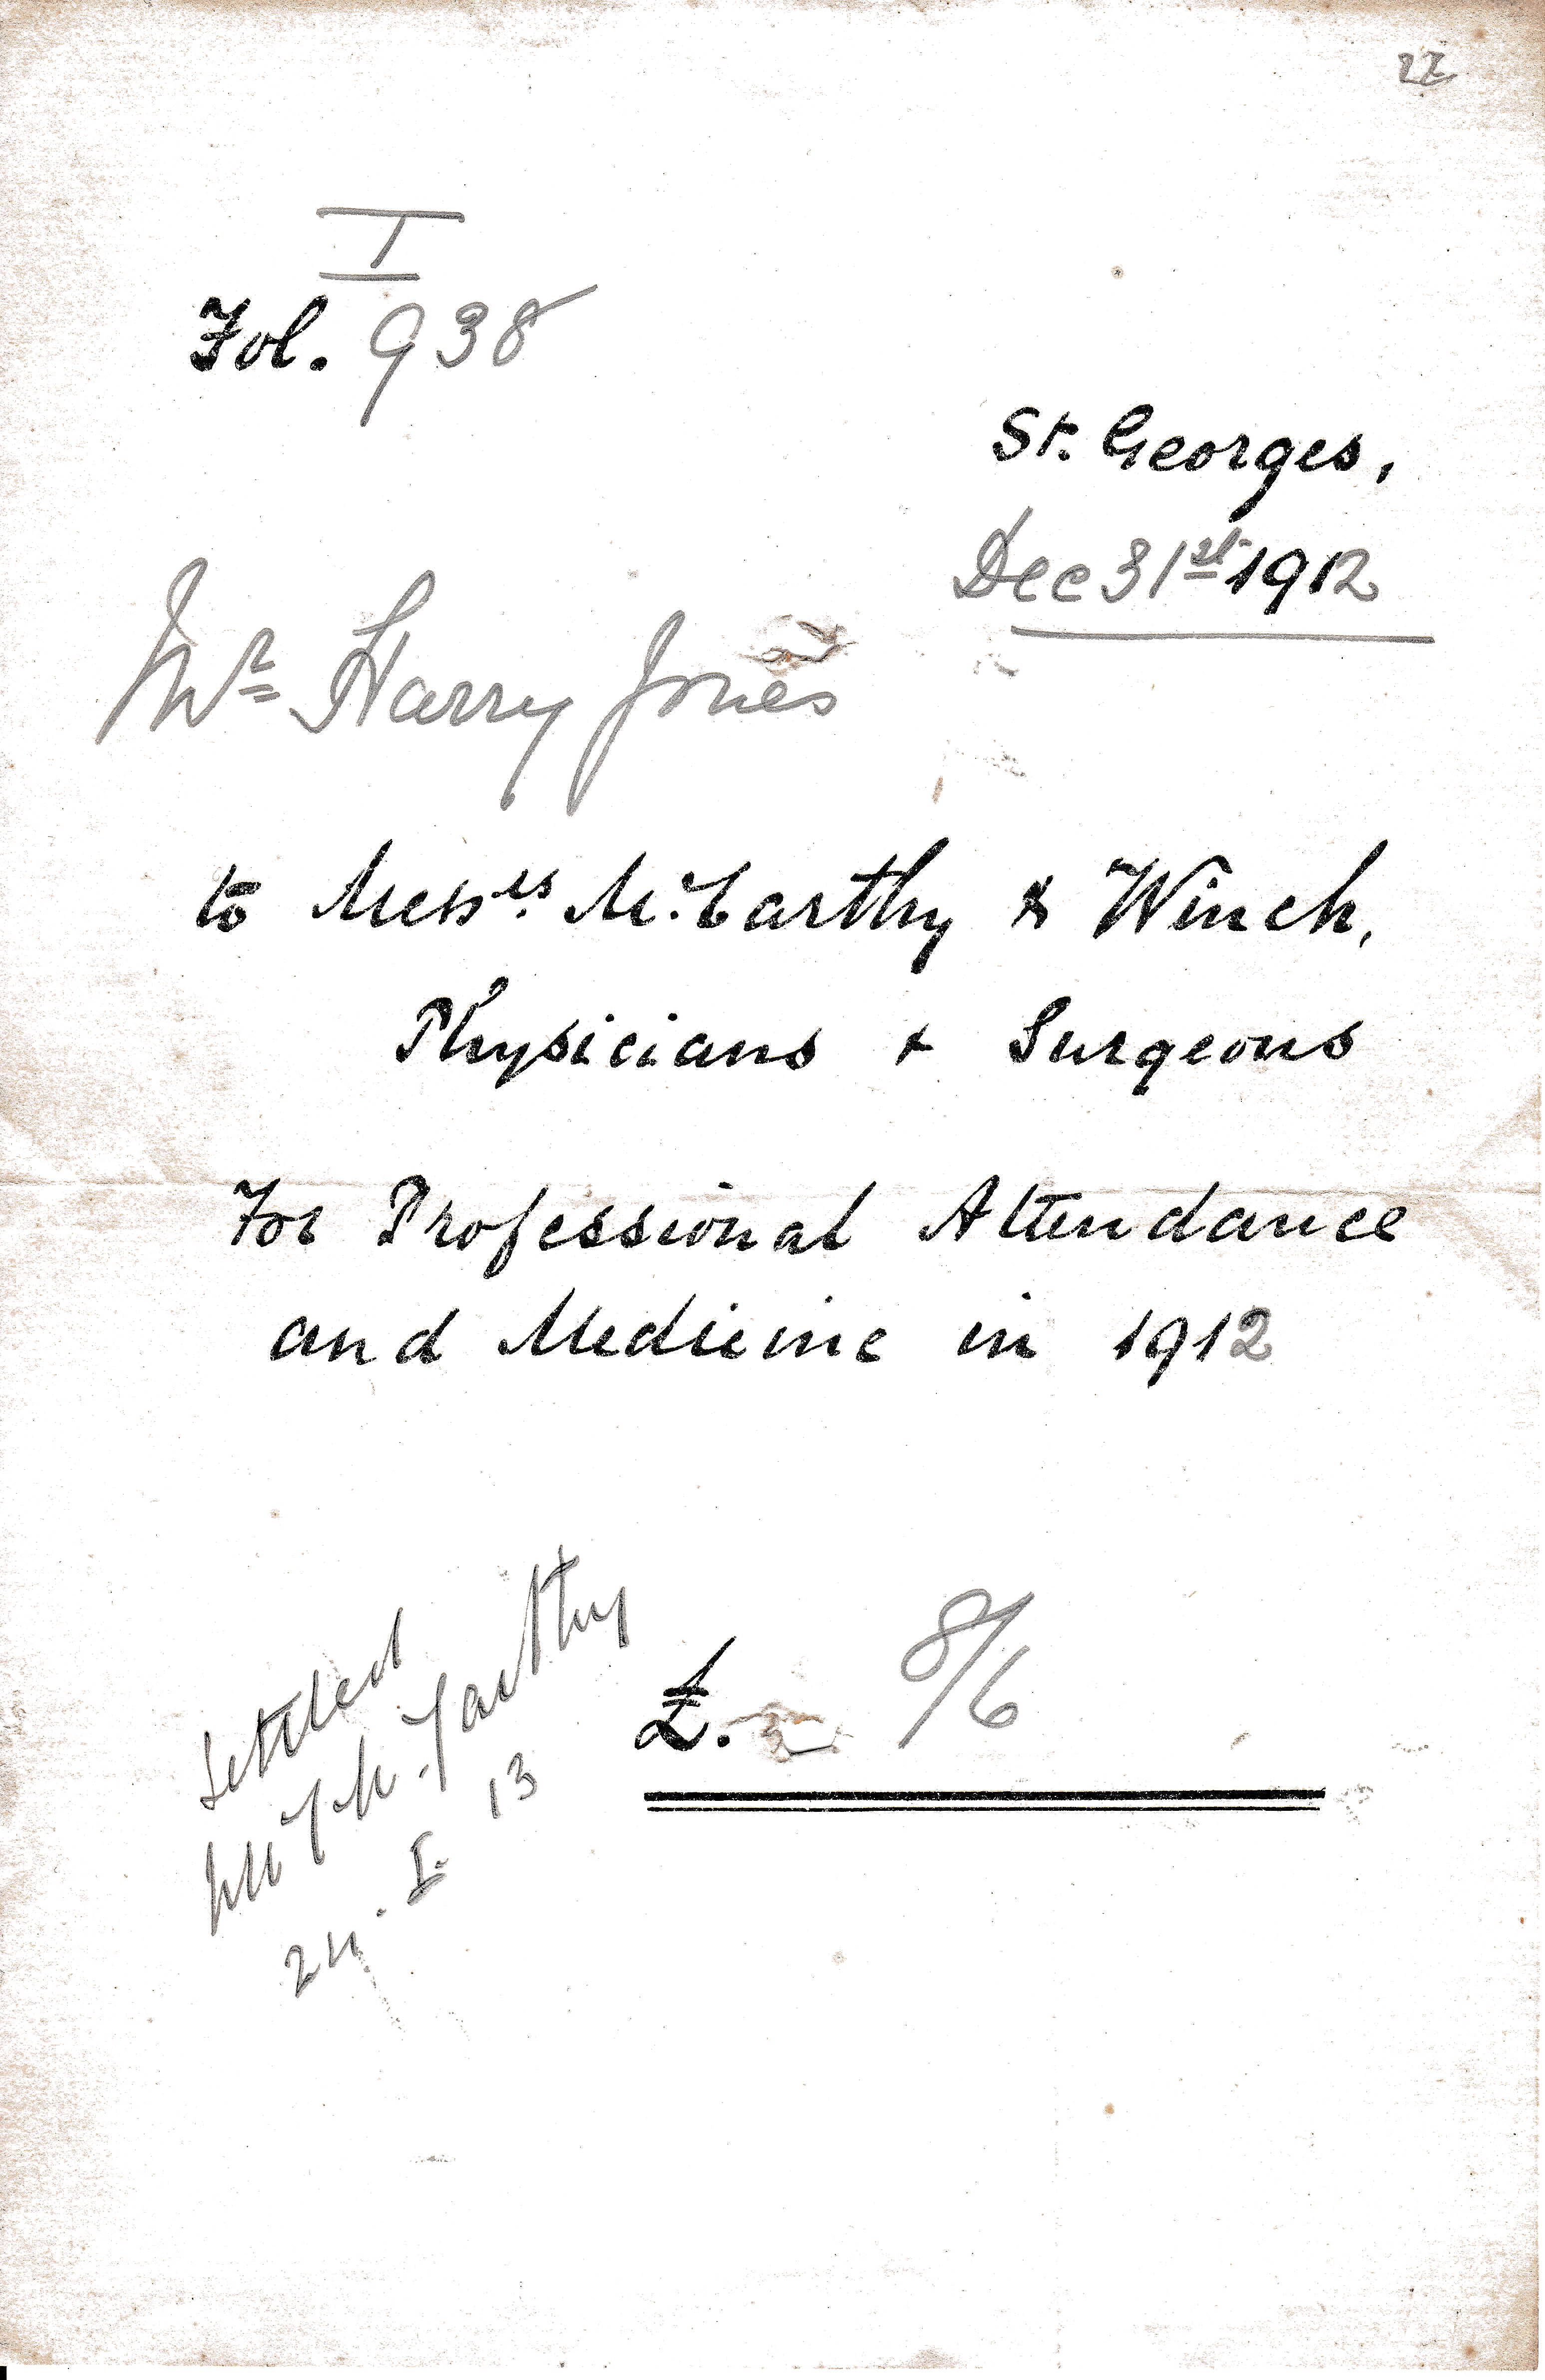 I
Fol. 938
St. Georges,
Dec 31st 1912
Mr Harry Jones
to Messrs. McCarthy & Winch,
Physicians & Surgeons
For Professional Attendance
and Medicine in 1912
£. 8/6
Settled
McCarthy
24. I. 13